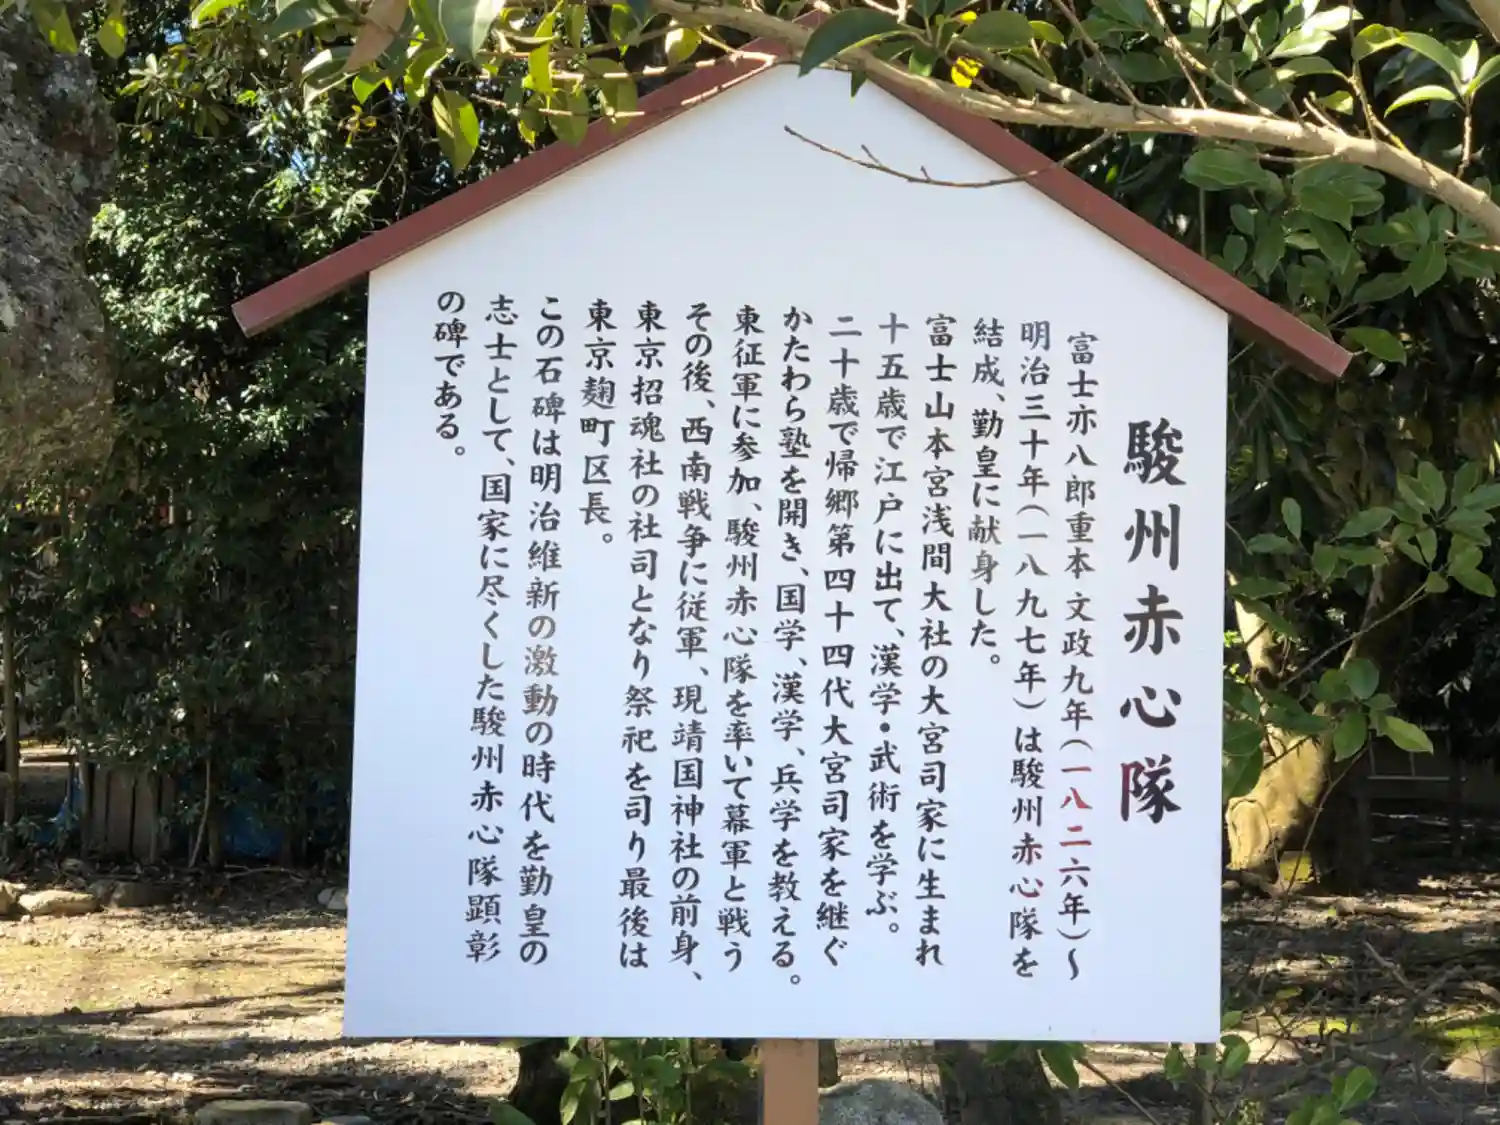 駿州赤心隊
富士亦八郎重本 文政九年（一八二六年）～
明治三十年（一八九七年）は駿州赤心隊を
結成、勤皇に献身した。
富士山本宮浅間大社の大宮司家に生まれ
十五歳で江戸に出て、漢学・武術を学ぶ。
二十歳で帰郷第四十四代大宮司家を継ぐ
かたわら塾を開き、国学、漢学、兵学を教える。
東征軍に参加、駿州赤心隊を率いて幕軍と戦う
その後、西南戦争に従軍、現靖国神社の前身、
東京招魂社の社司となり祭祀を司り最後は
東京麹町区長。
この石碑は明治維新の激動の時代を勤皇の
志士として、国家に尽くした駿州赤心隊顕彰
の碑である。